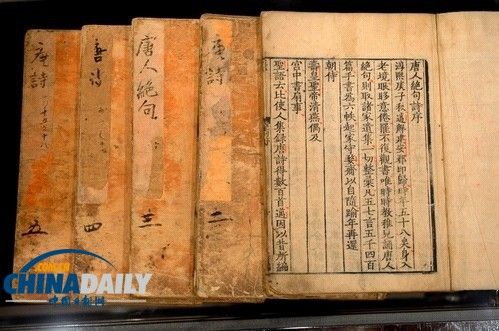 唐人絕句詩序
淳熙庚子秋邁解建安郡印歸時年五十八矣身入
老境眼眵意倦罷不復觀書唯時時教稚兒誦唐人
絕句則取諸家遺集一切彙整凡五七言五千四百
篇手書為六帙起家守婺齎以自隨踰年再還
朝侍
壽皇聖帝清燕偶及
宮中書扇事
聖語云比使人集録唐詩得數百首邁因以昔所編
唐詩
二
唐人絕句
三
唐詩
四
唐詩
五
CHINADAILY
中国日报网